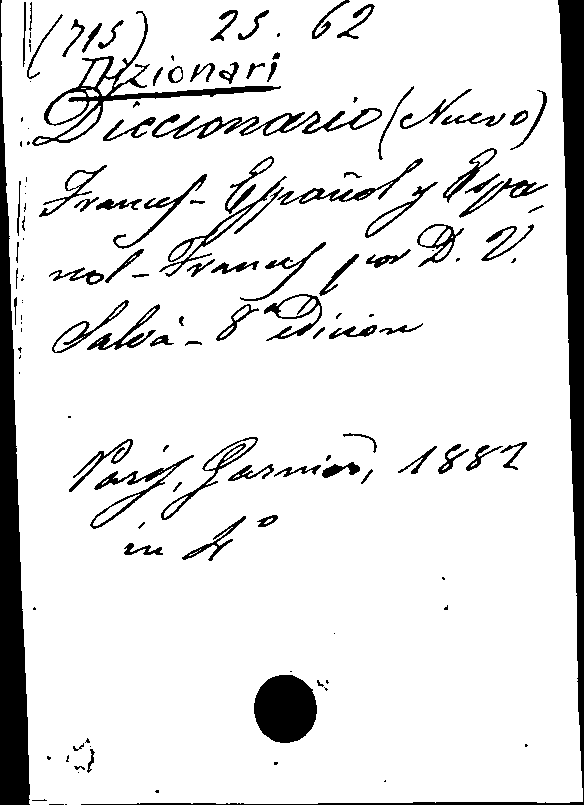 (715) 25. 62
Dizionari
Diccionario (Nuevo)
Frances - Español y Espa-
ñol - Frances por D. V.
Salvá - 8ª edicion
Paris, Garnier, 1882
in 4°